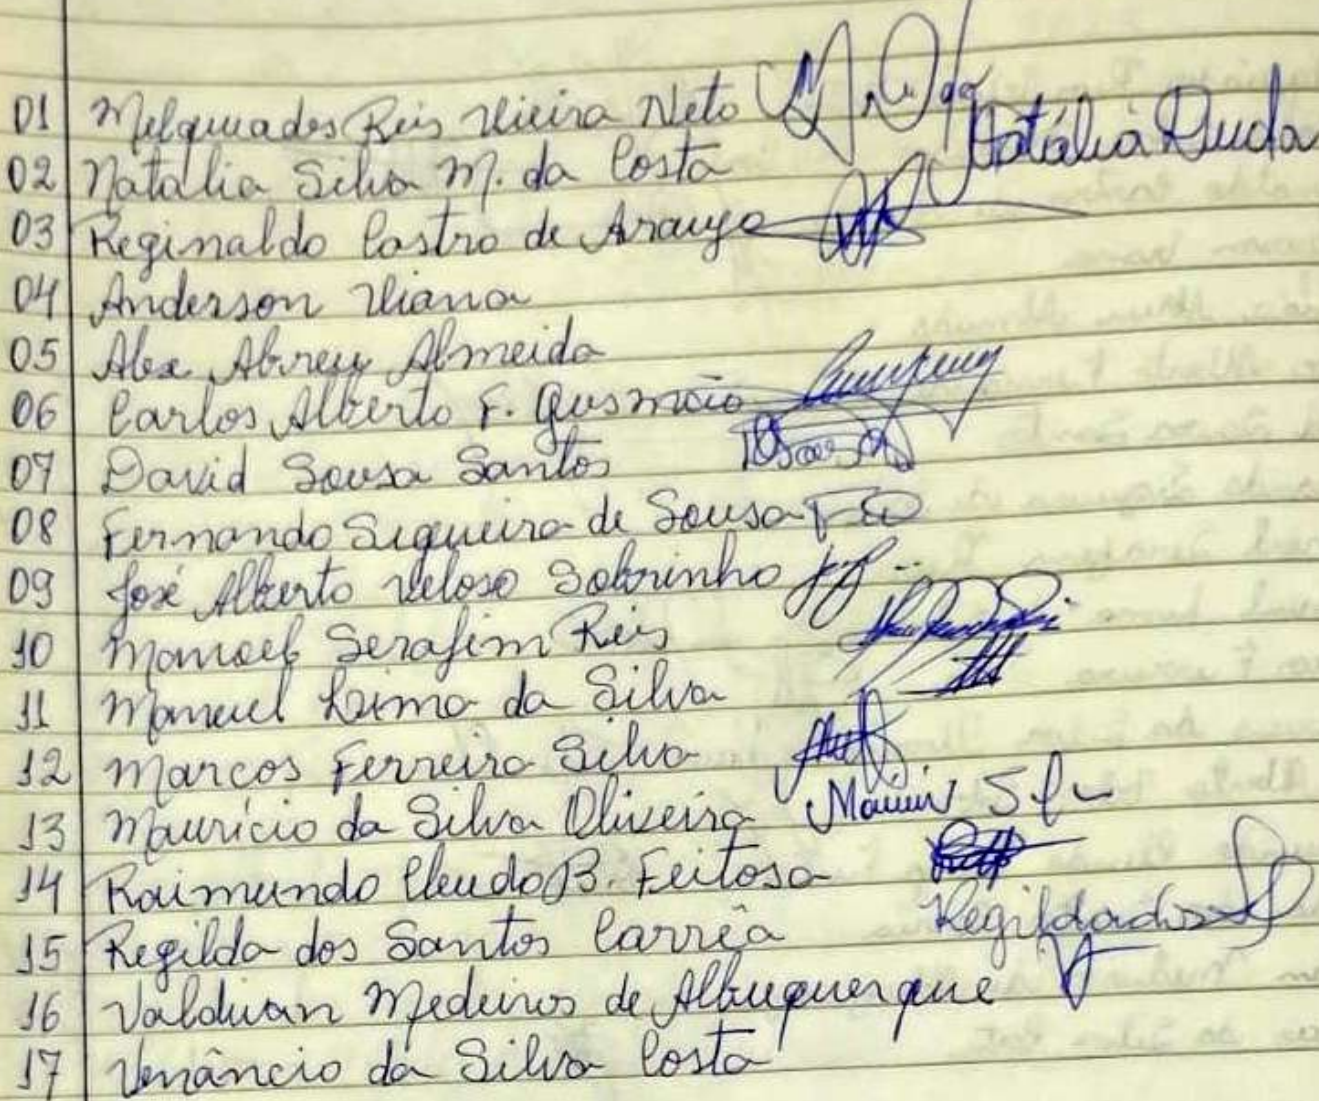 01 Melquiades Reis Vieira Neto
02 Natalia Silva M. da Costa Natália Duda
03 Reginaldo Castro de Araujo
04 Anderson Viana
05 Alex Abreu Almeida
06 Carlos Alberto F. Gusmão
07 David Sousa Santos
08 Fernando Siqueira de Sousa
09 José Alberto Veloso Sobrinho
10 Manoel Serafim Reis
11 Manuel Lima da Silva
12 Marcos Ferreira Silva
13 Maurício da Silva Oliveira
14 Raimundo Cleudo B. Feitosa
15 Regilda dos Santos Corrêa Regilda dos
16 Valdivan Medeiros de Albuquerque
17 Venâncio da Silva Costa